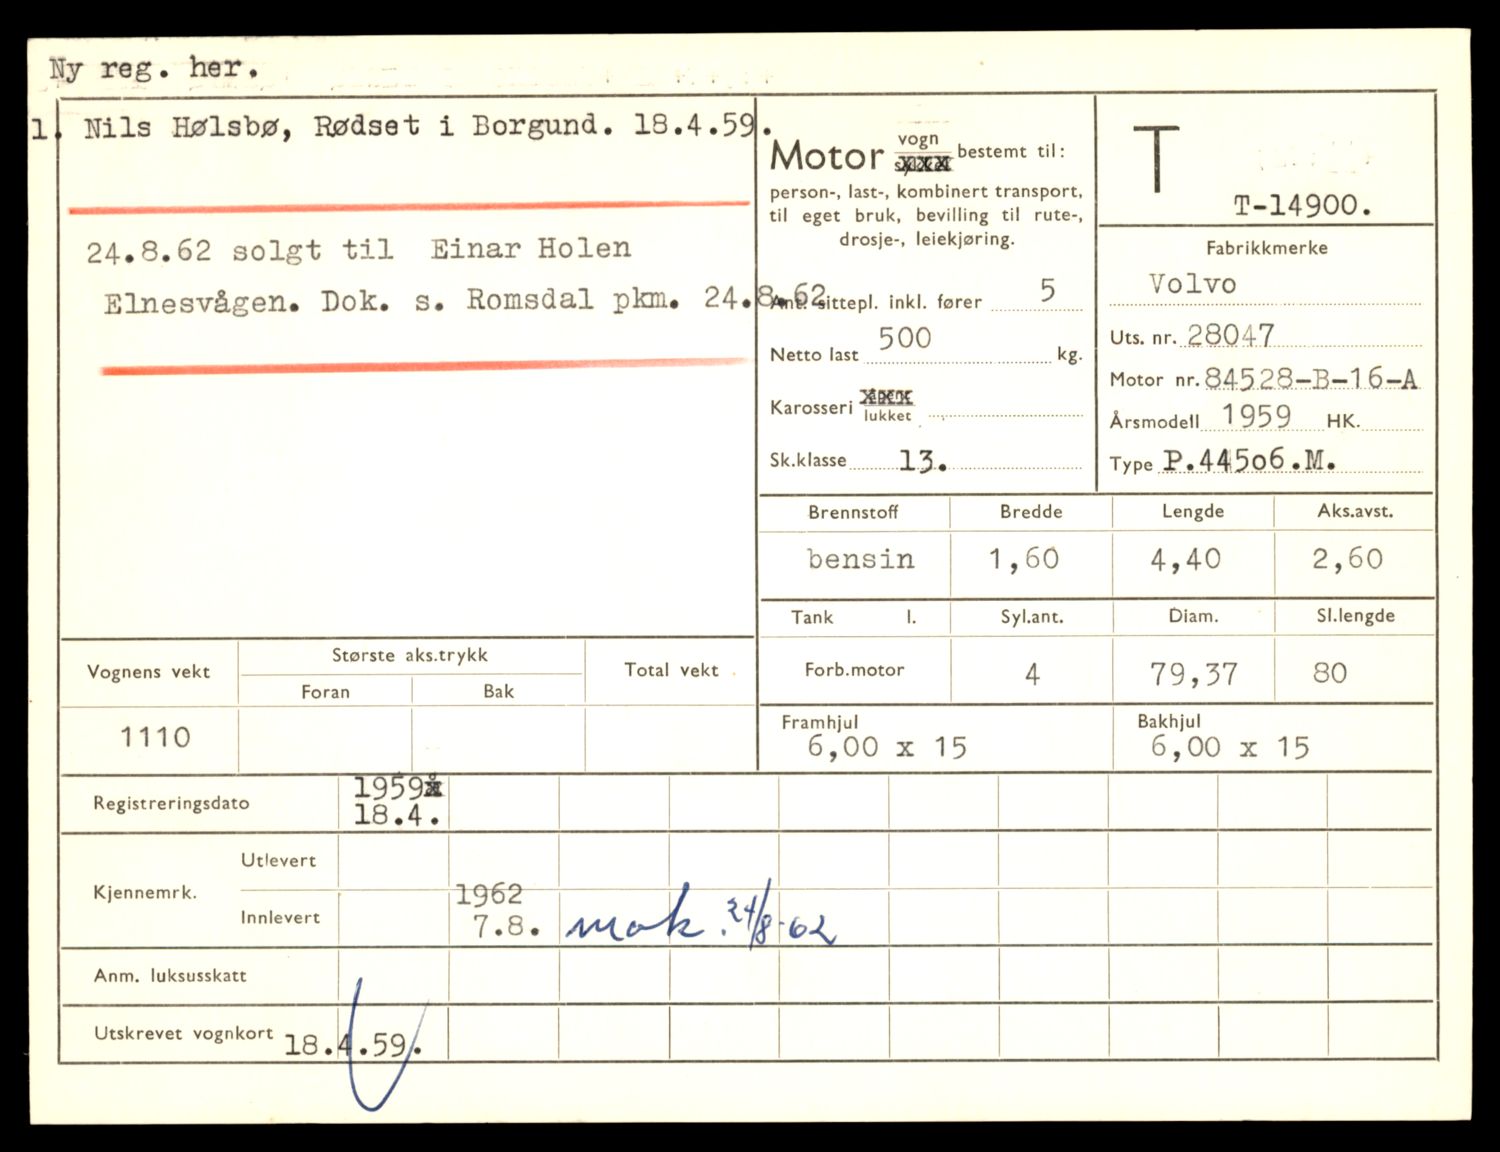 Ny reg. her.
1. Nils Hølsbø, Rødset i Borgund. 18.4.59.
24.8.62 solgt til Einar Holen
Elnesvågen. Dok. s. Romsdal pkm. 24.8.62
Motor vogn
bestemt til:
person-, last-, kombinert transport,
til eget bruk, bevilling til rute-,
drosje-, leiekjøring.
Ant. sittepl. inkl. fører 5
Netto last 500 kg.
Karosseri åpent
lukket
Sk.klasse 13.
T
T-14900.
Fabrikkmerke
Volvo
Uts. nr. 28047
Motor nr. 84528-B-16-A
Årsmodell 1959 HK.
Type P.44506.M.
Brennstoff Bredde Lengde Aks.avst.
bensin 1,60 4,40 2,60
Tank l. Syl.ant. Diam. Sl.lengde
Forb.motor 4 79,37 80
Framhjul Bakhjul
6,00 x 15 6,00 x 15
Vognens vekt Største aks.trykk Total vekt
Foran Bak
1110
Registreringsdato 1959
18.4.
Kjennemrk. Utlevert
Innlevert 1962
7.8. mak. 24/8-62
Anm. luksusskatt
Utskrevet vognkort 18.4.59.